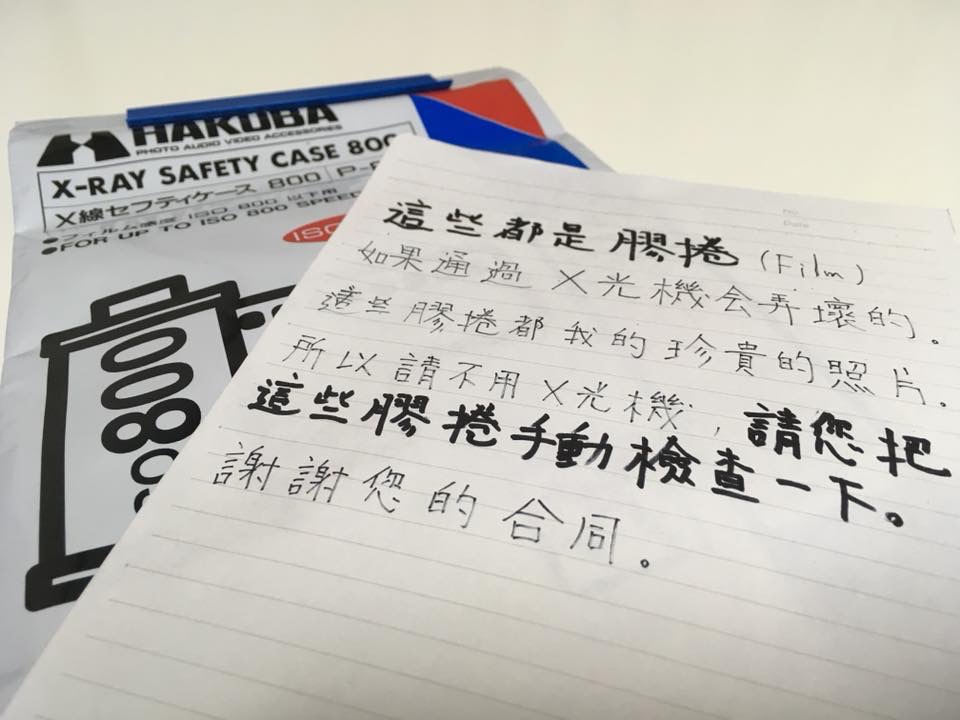 HAKUBA
PHOTO AUDIO VIDEO ACCESSORIES
X-RAY SAFETY CASE 800
X線セフティケース 800 P-
●フィルム感度 ISO 800 以下用
●FOR UP TO ISO 800 SPEED
ISO
008
008
No.
Date
這些都是膠捲 (Film)
如果通過X光機会弄壞的。
這些膠捲都我的珍貴的照片。
所以請不用X光機，請您把
這些膠捲手動檢查一下。
謝謝您的合同。